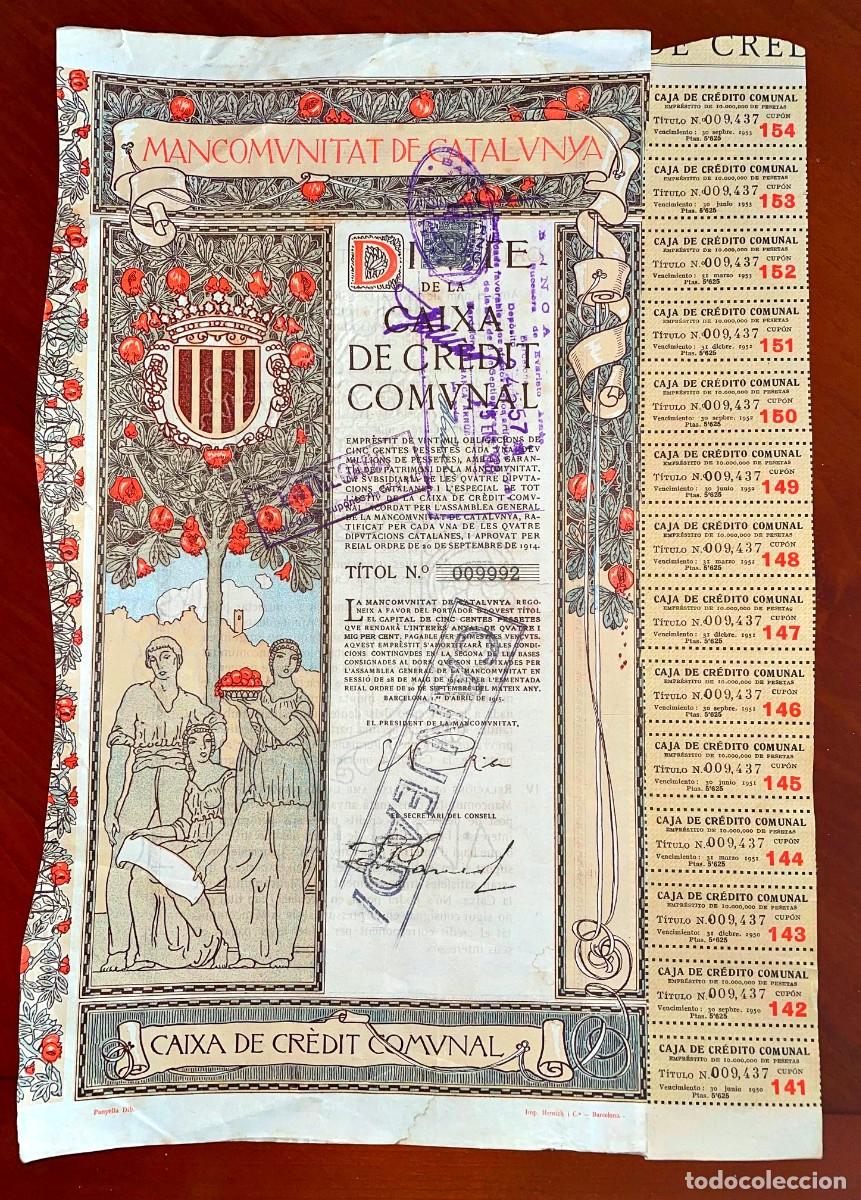 MANCOMVNITAT DE CATALVNYA
DE LA
CAIXA
DE CRÈDIT
COMVNAL
EMPRÈSTIT DE VINT MIL OBLIGACIONS DE
CINC CENTES PESSETES CADA VNA (DEV
MILLIONS DE PESSETES), AMB LA GARAN-
TIA DEL PATRIMONI DE LA MANCOMVNITAT,
LA SVBSIDIARIA DE LES QVATRE DIPVTA-
CIONS CATALANES I L'ESPECIAL DE TOT
L'ACTIV DE LA CAIXA DE CRÈDIT COMV-
NAL, ACORDAT PER L'ASSAMBLEA GENERAL
DE LA MANCOMVNITAT DE CATALVNYA, RA-
TIFICAT PER CADA VNA DE LES QVATRE
DIPVTACIONS CATALANES, I APROVAT PER
REIAL ORDRE DE 20 DE SEPTEMBRE DE 1914.
TÍTOL N.º 009992
LA MANCOMVNITAT DE CATALVNYA REGO-
NEIX A FAVOR DEL PORTADOR D'AQVEST TÍTOL
EL CAPITAL DE CINC CENTES PESSETES
QVE RENDARÀ L'INTERÈS ANYAL DE QVATRE I
MIG PER CENT, PAGABLE PER TRIMESTRES VENÇVTS.
AQVEST EMPRÈSTIT S'AMORTIZARÀ EN LES CONDI-
CIONS CONTINGVDES EN LA SEGONA DE LES BASES
CONSIGNADES AL DORS, QVE SON LES FIXADES PER
L'ASSAMBLEA GENERAL DE LA MANCOMVNITAT EN
SESSIÓ DE 28 DE MAIG DE 1914, I
REIAL ORDRE DE 20 DE SEPTEMBRE DEL MATEIX ANY.
BARCELONA, 1.er D'ABRIL DE 1915.
EL PRESIDENT DE LA MANCOMVNITAT,
EL SECRETARI DEL CONSELL
CANJEADA
CAIXA DE CRÈDIT COMVNAL
Panyella Dib.
Imp. Henrich i C.ª — Barcelona
CAJA DE CRÉDITO COMUNAL
EMPRÉSTITO DE 10.000,000 DE PESETAS
TÍTULO N.º 009,437 CUPÓN
Vencimiento: 30 sepbre. 1953 154
Ptas. 5'625
CAJA DE CRÉDITO COMUNAL
EMPRÉSTITO DE 10.000,000 DE PESETAS
TÍTULO N.º 009,437 CUPÓN
Vencimiento: 30 junio 1953 153
Ptas. 5'625
CAJA DE CRÉDITO COMUNAL
EMPRÉSTITO DE 10.000,000 DE PESETAS
TÍTULO N.º 009,437 CUPÓN
Vencimiento: 31 marzo 1953 152
Ptas. 5'625
CAJA DE CRÉDITO COMUNAL
EMPRÉSTITO DE 10.000,000 DE PESETAS
TÍTULO N.º 009,437 CUPÓN
Vencimiento: 31 dicbre. 1952 151
Ptas. 5'625
CAJA DE CRÉDITO COMUNAL
EMPRÉSTITO DE 10.000,000 DE PESETAS
TÍTULO N.º 009,437 CUPÓN
Vencimiento: 30 sepbre. 1952 150
Ptas. 5'625
CAJA DE CRÉDITO COMUNAL
EMPRÉSTITO DE 10.000,000 DE PESETAS
TÍTULO N.º 009,437 CUPÓN
Vencimiento: 30 junio 1952 149
Ptas. 5'625
CAJA DE CRÉDITO COMUNAL
EMPRÉSTITO DE 10.000,000 DE PESETAS
TÍTULO N.º 009,437 CUPÓN
Vencimiento: 31 marzo 1952 148
Ptas. 5'625
CAJA DE CRÉDITO COMUNAL
EMPRÉSTITO DE 10.000,000 DE PESETAS
TÍTULO N.º 009,437 CUPÓN
Vencimiento: 31 dicbre. 1951 147
Ptas. 5'625
CAJA DE CRÉDITO COMUNAL
EMPRÉSTITO DE 10.000,000 DE PESETAS
TÍTULO N.º 009,437 CUPÓN
Vencimiento: 30 sepbre. 1951 146
Ptas. 5'625
CAJA DE CRÉDITO COMUNAL
EMPRÉSTITO DE 10.000,000 DE PESETAS
TÍTULO N.º 009,437 CUPÓN
Vencimiento: 30 junio 1951 145
Ptas. 5'625
CAJA DE CRÉDITO COMUNAL
EMPRÉSTITO DE 10.000,000 DE PESETAS
TÍTULO N.º 009,437 CUPÓN
Vencimiento: 31 marzo 1951 144
Ptas. 5'625
CAJA DE CRÉDITO COMUNAL
EMPRÉSTITO DE 10.000,000 DE PESETAS
TÍTULO N.º 009,437 CUPÓN
Vencimiento: 31 dicbre. 1950 143
Ptas. 5'625
CAJA DE CRÉDITO COMUNAL
EMPRÉSTITO DE 10.000,000 DE PESETAS
TÍTULO N.º 009,437 CUPÓN
Vencimiento: 30 sepbre. 1950 142
Ptas. 5'625
CAJA DE CRÉDITO COMUNAL
EMPRÉSTITO DE 10.000,000 DE PESETAS
TÍTULO N.º 009,437 CUPÓN
Vencimiento: 30 junio 1950 141
Ptas. 5'625
todocoleccion